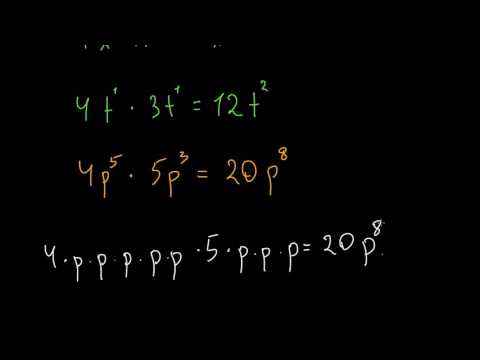 4t¹ · 3t¹ = 12t²
4p⁵ · 5p³ = 20p⁸
4·p·p·p·p·p·5·p·p·p = 20p⁸